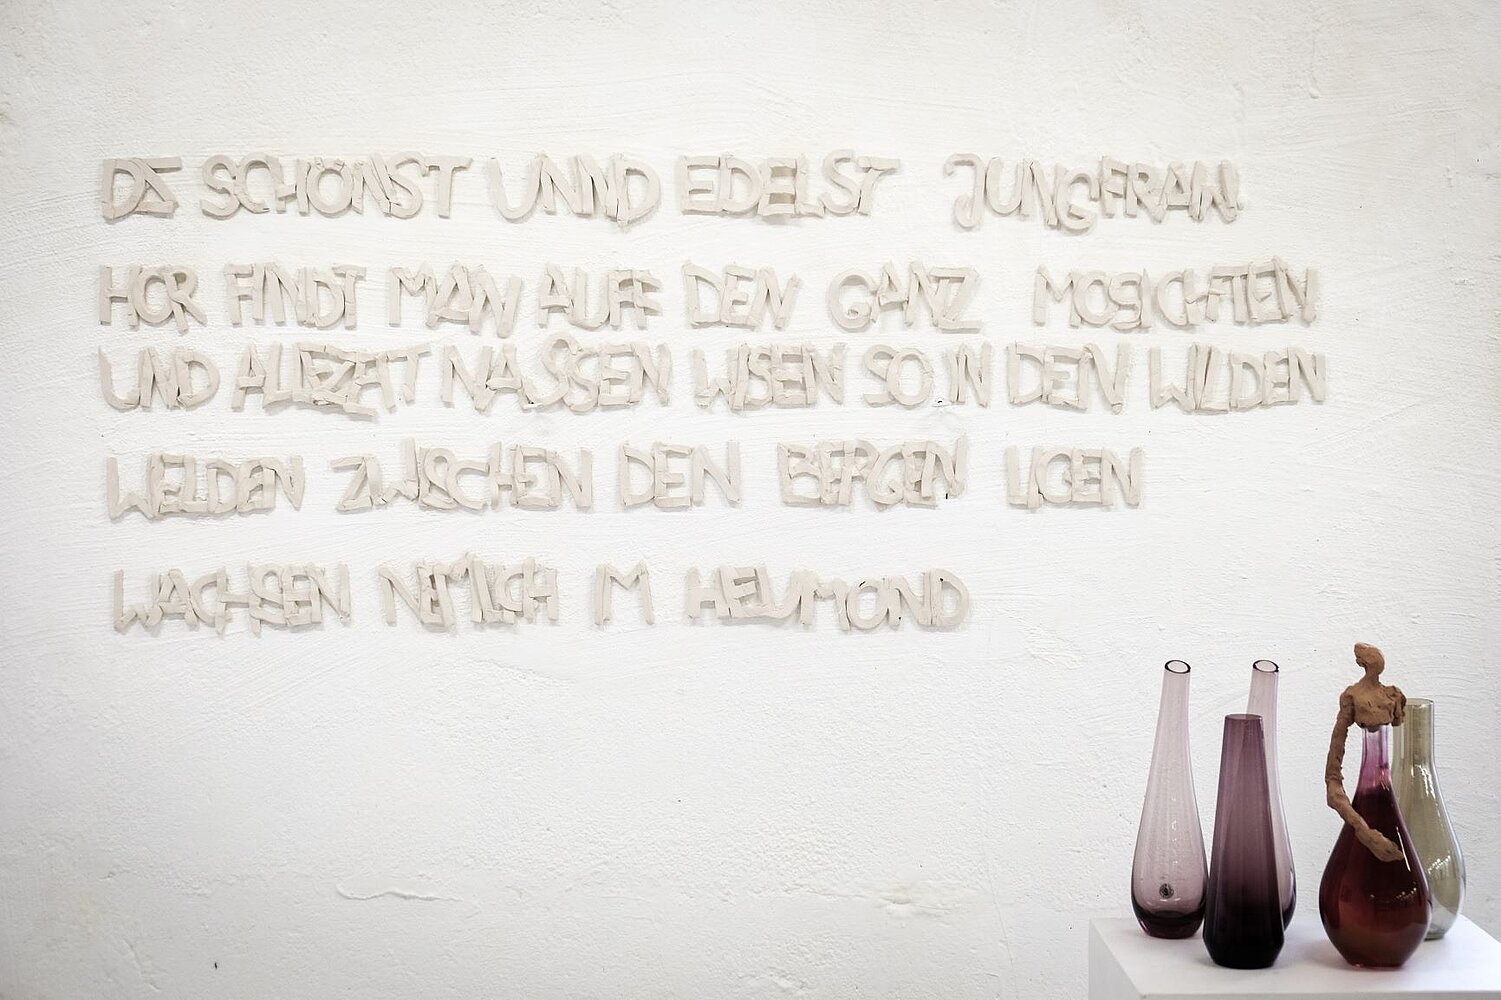 DZ SCHÖNST UNND EDELST JUNGFRAW
HOR FINDT MAN AUFF DEN GANZ MOSICHTEN
UND ALLEZAIT NASSEN WISEN SO IN DEN WILDEN
WELDEN ZWISCHEN DEN BERGEN LIGEN
WACHSEN NEMLICH IM HEUMOND